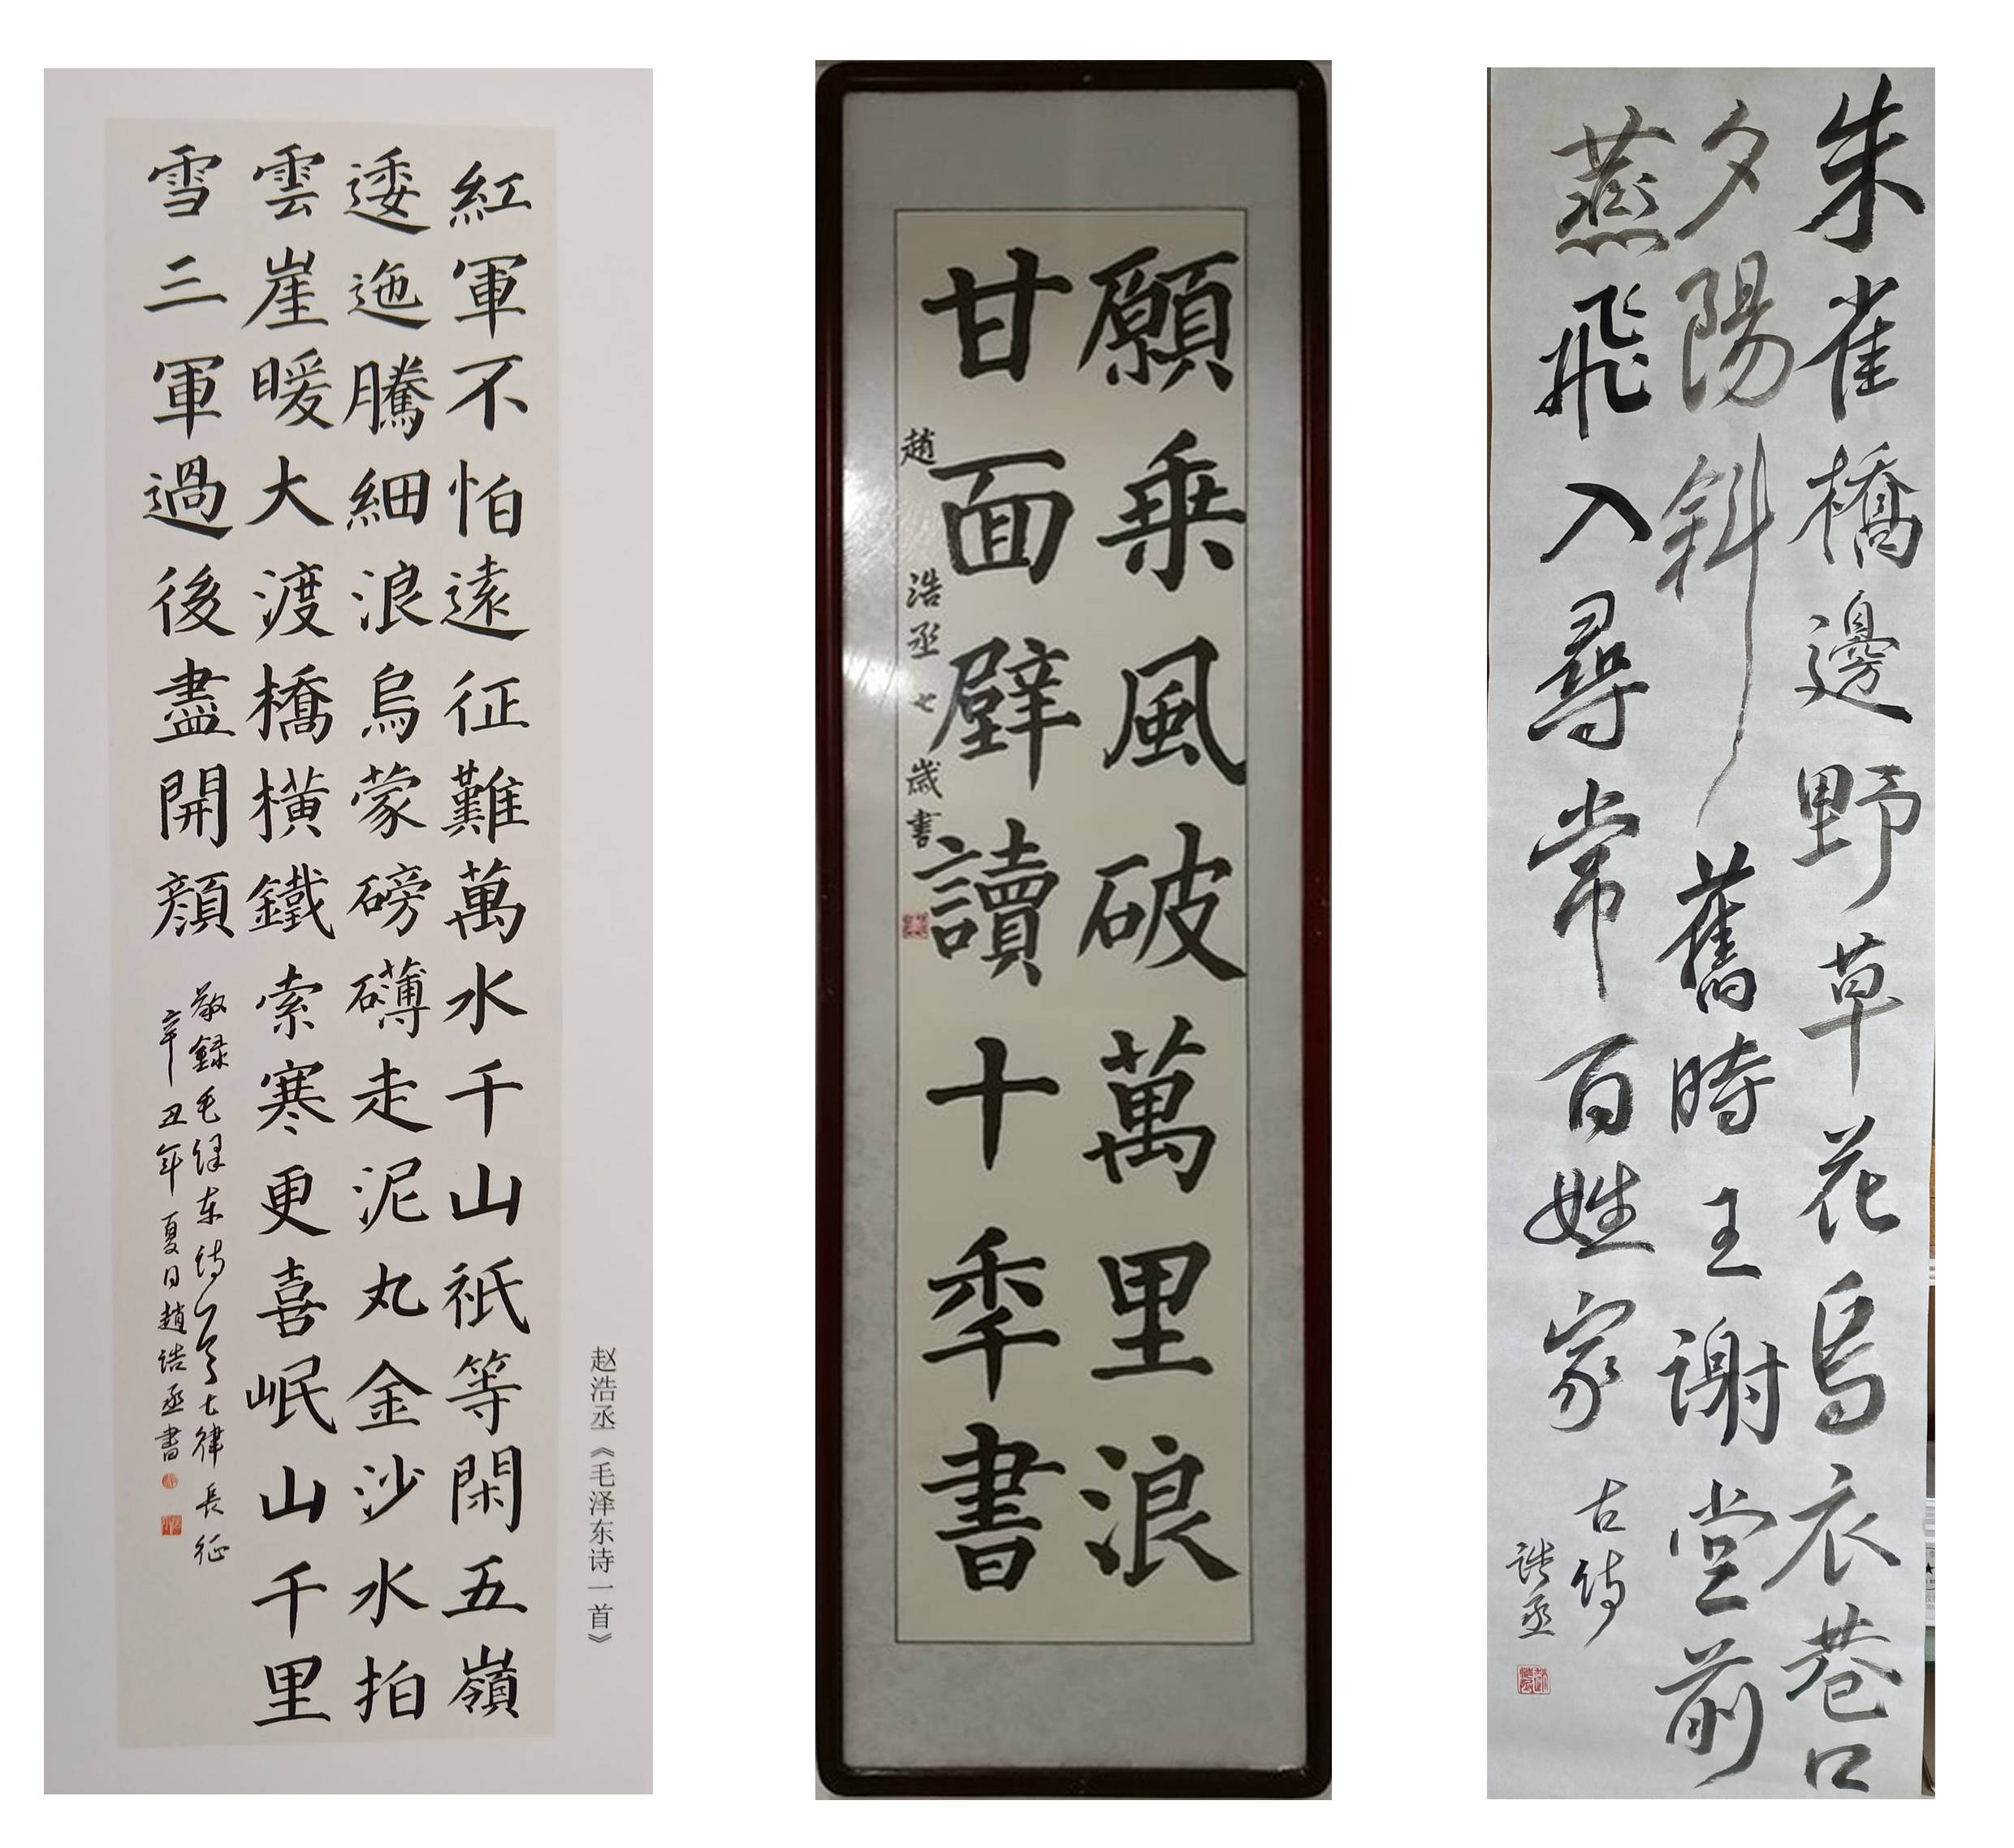 紅軍不怕遠征難萬水千山祇等閑五嶺
逶迤騰細浪烏蒙磅礴走泥丸金沙水拍
雲崖暖大渡橋橫鐵索寒更喜岷山千里
雪三軍過後盡開顔
敬録毛澤东诗一首七律長征
辛丑年夏日趙浩丞書
赵浩丞《毛泽东诗一首》
願乘風破萬里浪
甘面壁讀十季書
趙浩丞七歲書
朱雀橋邊野草花烏衣巷口
夕陽斜舊時王謝堂前
燕飛入尋常百姓家
古诗
浩丞